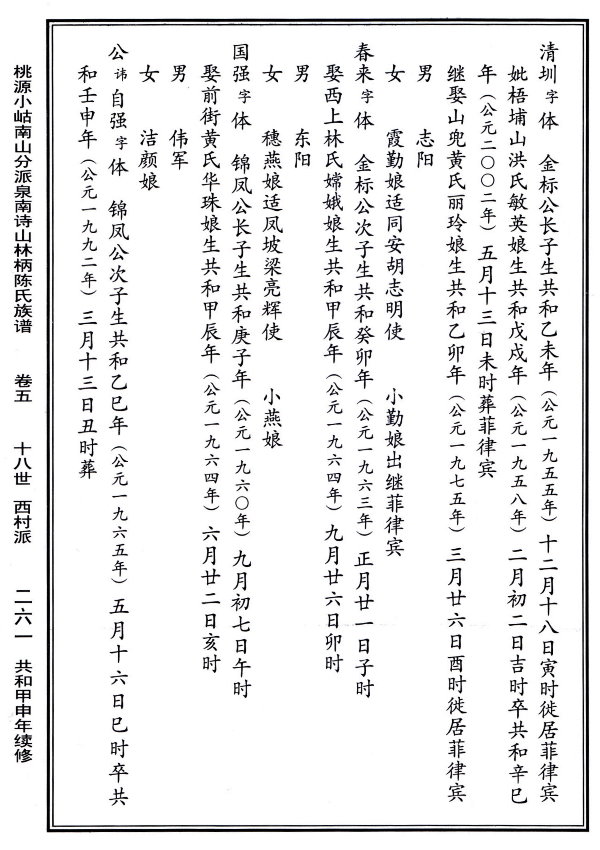 清圳字体 金标公长子生共和乙未年（公元一九五五年）十二月十八日寅时徙居菲律宾
妣梧埔山洪氏敏英娘生共和戊戌年（公元一九五八年）二月初二日吉时卒共和辛巳
年（公元二〇〇二年）五月十三日未时葬菲律宾
继娶山兜黄氏丽玲娘生共和乙卯年（公元一九七五年）三月廿六日酉时徙居菲律宾
男 志阳
女 霞勤娘适同安胡志明使 小勤娘出继菲律宾
春来字体 金标公次子生共和癸卯年（公元一九六三年）正月廿一日子时
娶西上林氏嫦娥娘生共和甲辰年（公元一九六四年）九月廿六日卯时
男 东阳
女 穗燕娘适凤坡梁亮辉使 小燕娘
国强字体 锦凤公长子生共和庚子年（公元一九六〇年）九月初七日午时
娶前街黄氏华珠娘生共和甲辰年（公元一九六四年）六月廿二日亥时
男 伟军
女 洁颜娘
公讳自强字体 锦凤公次子生共和乙巳年（公元一九六五年）五月十六日巳时卒共
和壬申年（公元一九九二年）三月十三日丑时葬
桃源小岵南山分派泉南诗山林柄陈氏族谱 卷五 十八世 西村派 二六一 共和甲申年续修